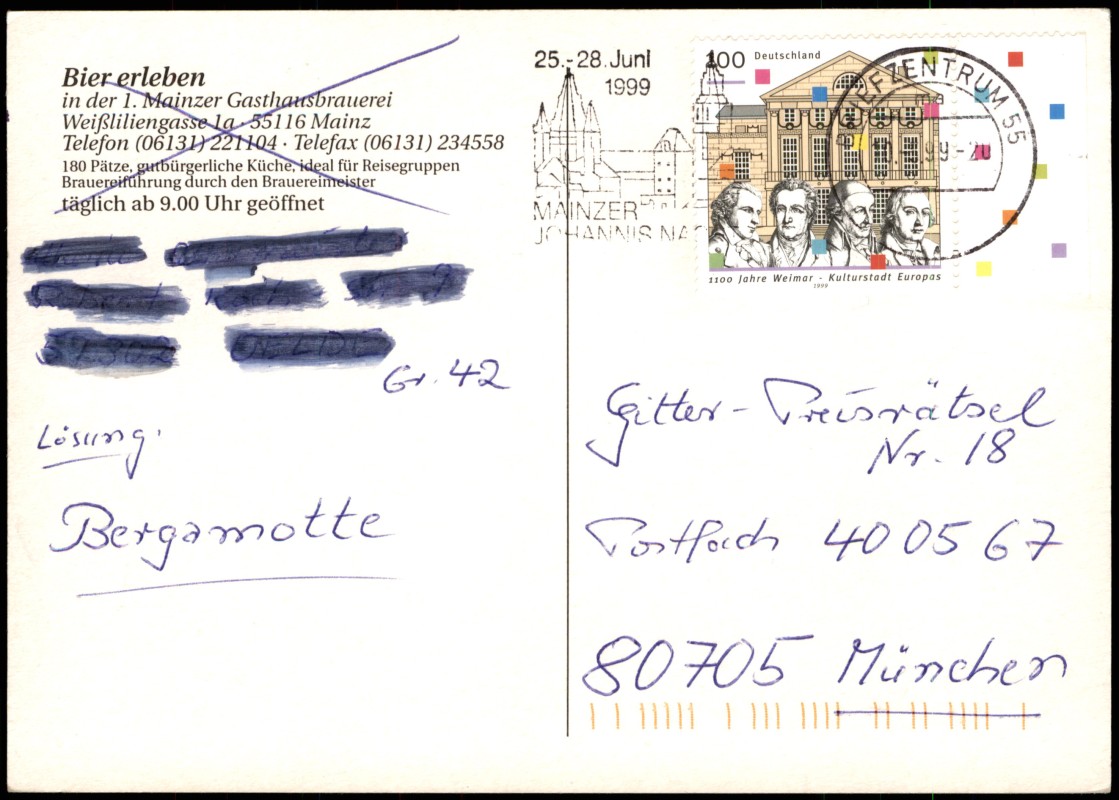 Bier erleben
in der 1. Mainzer Gasthausbrauerei
Weißliliengasse 1a · 55116 Mainz
Telefon (06131) 221104 · Telefax (06131) 234558
180 Pätze, gutbürgerliche Küche, ideal für Reisegruppen
Brauereiführung durch den Brauereimeister
täglich ab 9.00 Uhr geöffnet
Gr. 42
Lösung:
Bergamotte
25.-28. Juni
1999
MAINZER
JOHANNIS
100 Deutschland
1100 Jahre Weimar - Kulturstadt Europas
1999
BRIEFZENTRUM 55
Gitter-Preisrätsel
Nr. 18
Postfach 40 05 67
80705 München